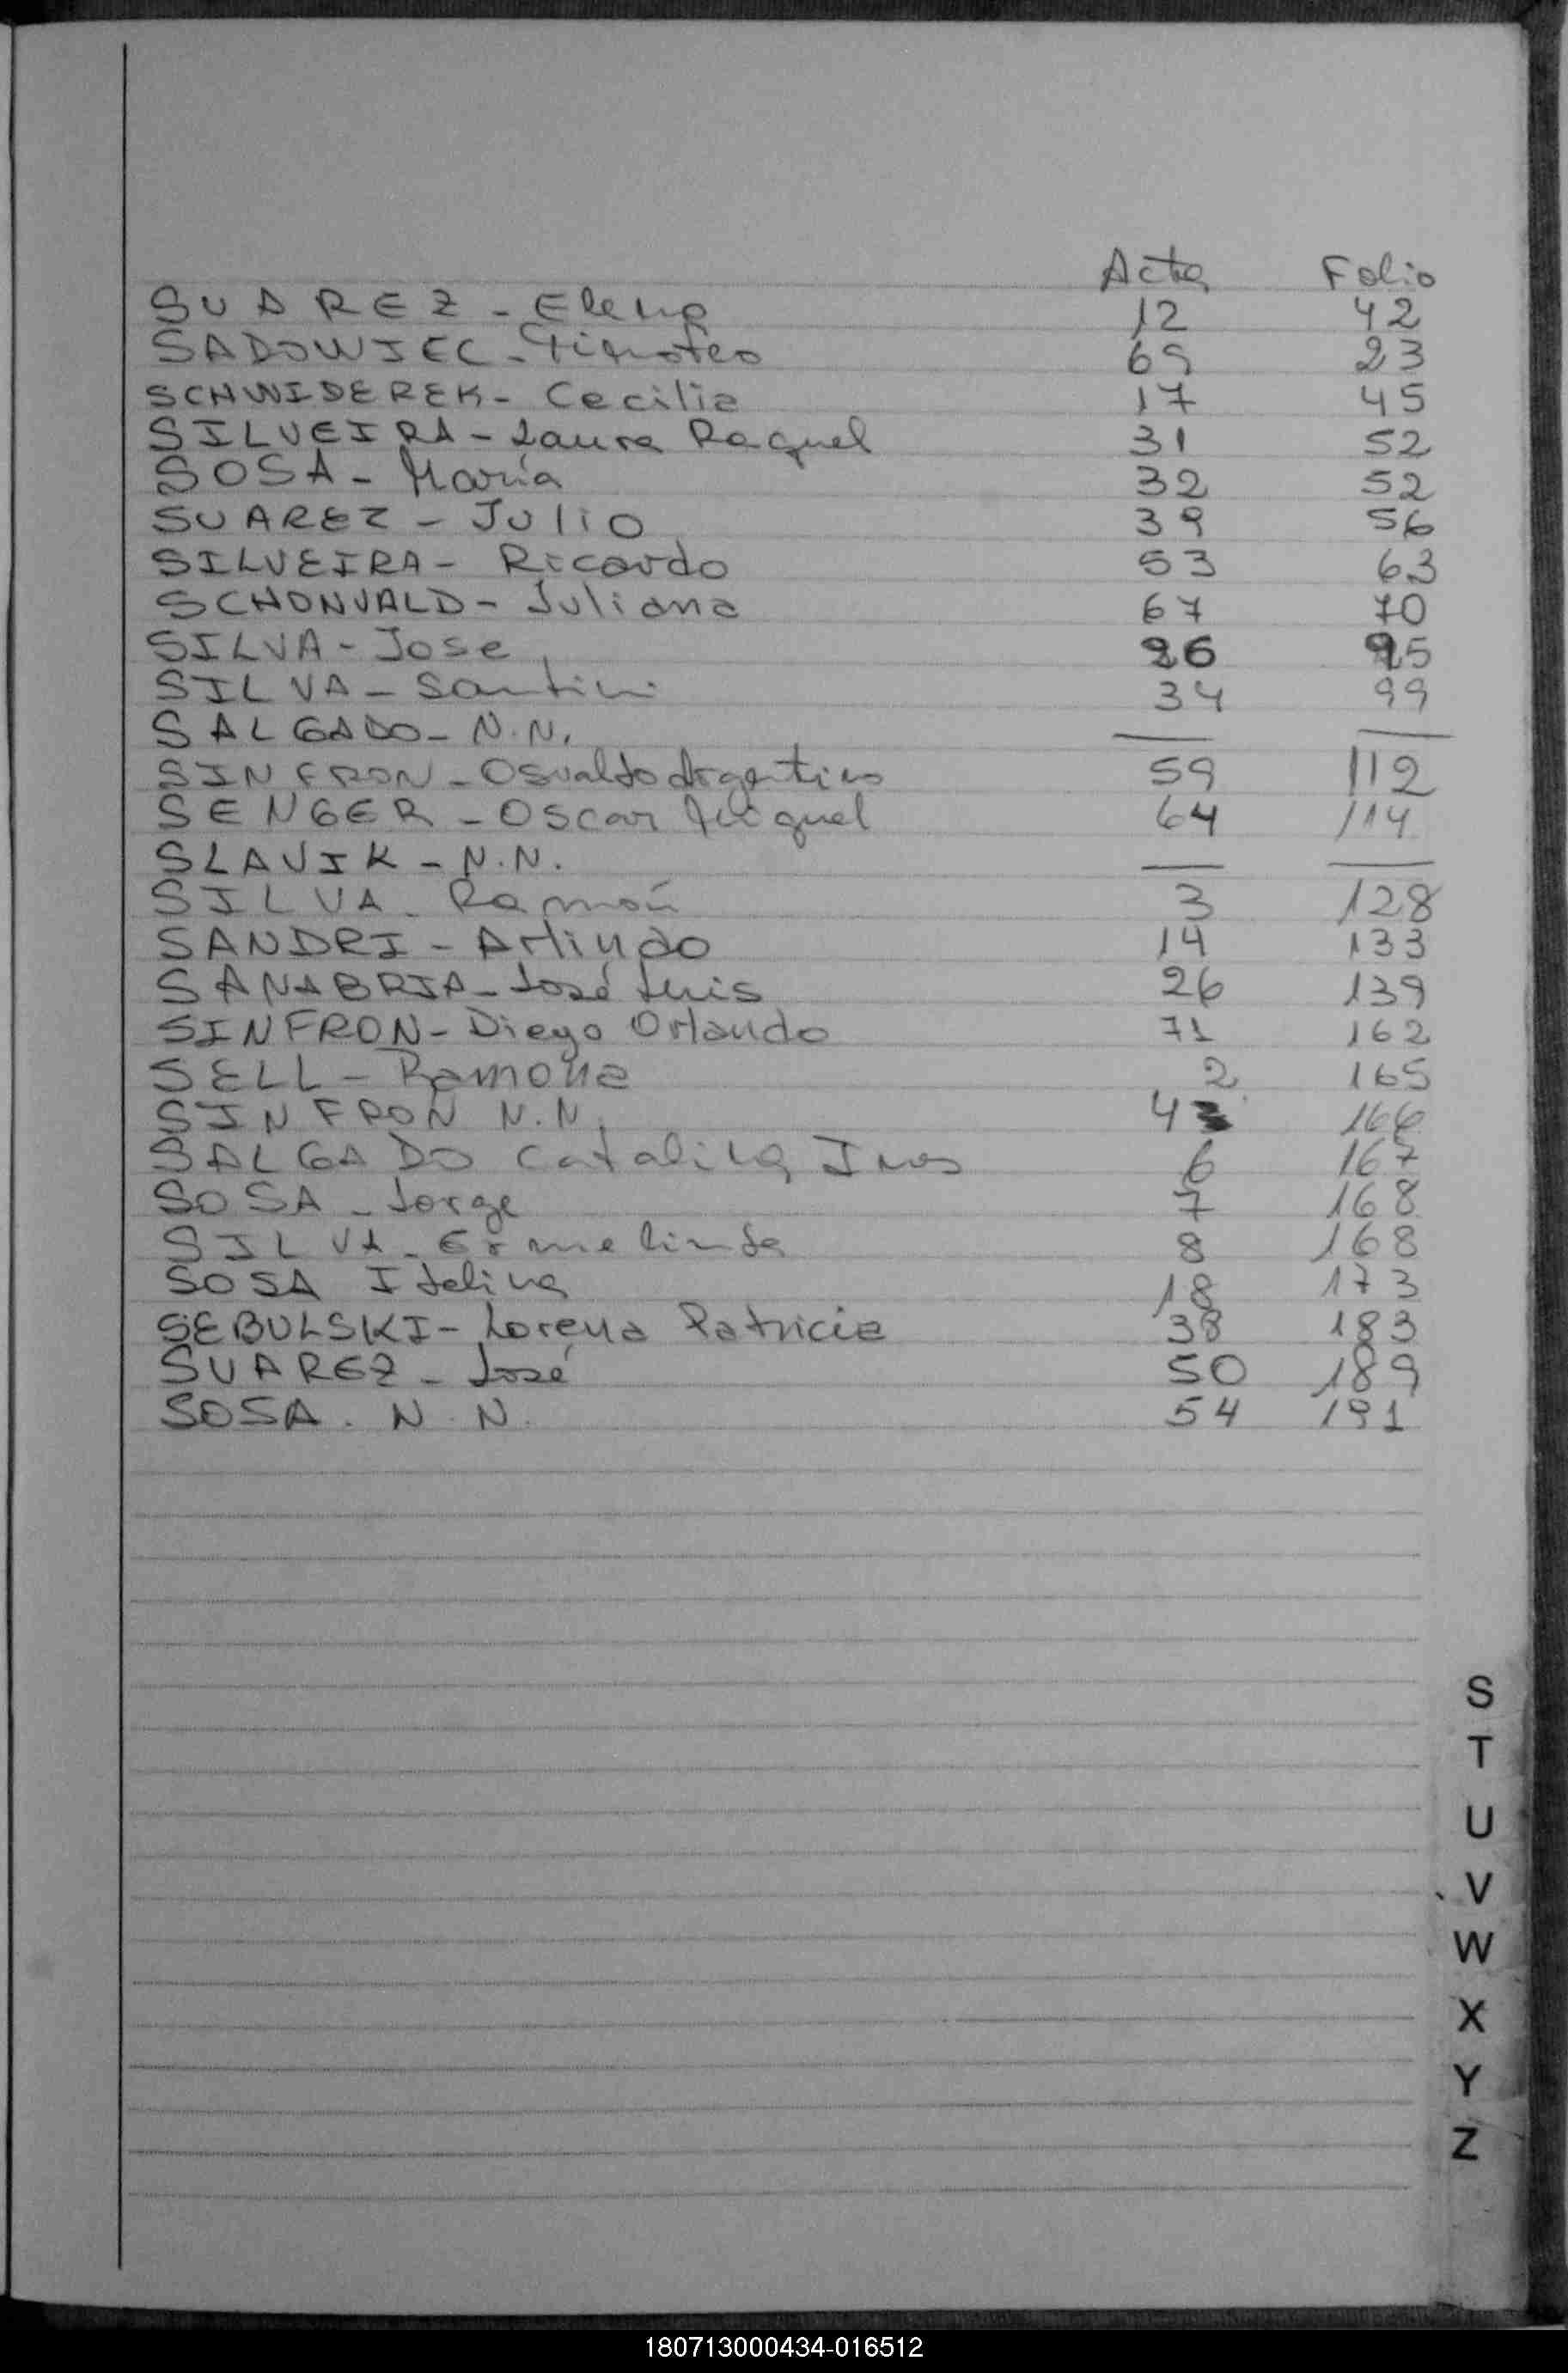 Acta Folio
SUAREZ - Elena 12 42
SADOWIEC - Timoteo 65 23
SCHWIDEREK - Cecilia 17 45
SILVEIRA - Laura Raquel 31 52
SOSA - María 32 52
SUAREZ - JULIO 39 56
SILVEIRA - Ricardo 53 63
SCHONVALD - Juliana 67 70
SILVA - Jose 26 95
SILVA - Santini 34 99
SALGADO - N.N. — —
SINFRON - Osvaldo Argentino 59 112
SENGER - Oscar Miguel 64 114
SLAVIK - N.N. — —
SILVA - Ramón 3 128
SANDRI - Arlindo 14 133
SANABRIA - José Luis 26 139
SINFRON - Diego Orlando 71 162
SELL - Ramona 2 165
SINFRON N.N. 4 166
SALGADO Catalina Ines 6 167
SOSA - Jorge 7 168
SILVA - Ermelinda 8 168
SOSA Idelina 18 173
SEBULSKI - Lorena Patricia 38 183
SUAREZ - José 50 189
SOSA. N.N. 54 191
S
T
U
V
W
X
Y
Z
180713000434-016512